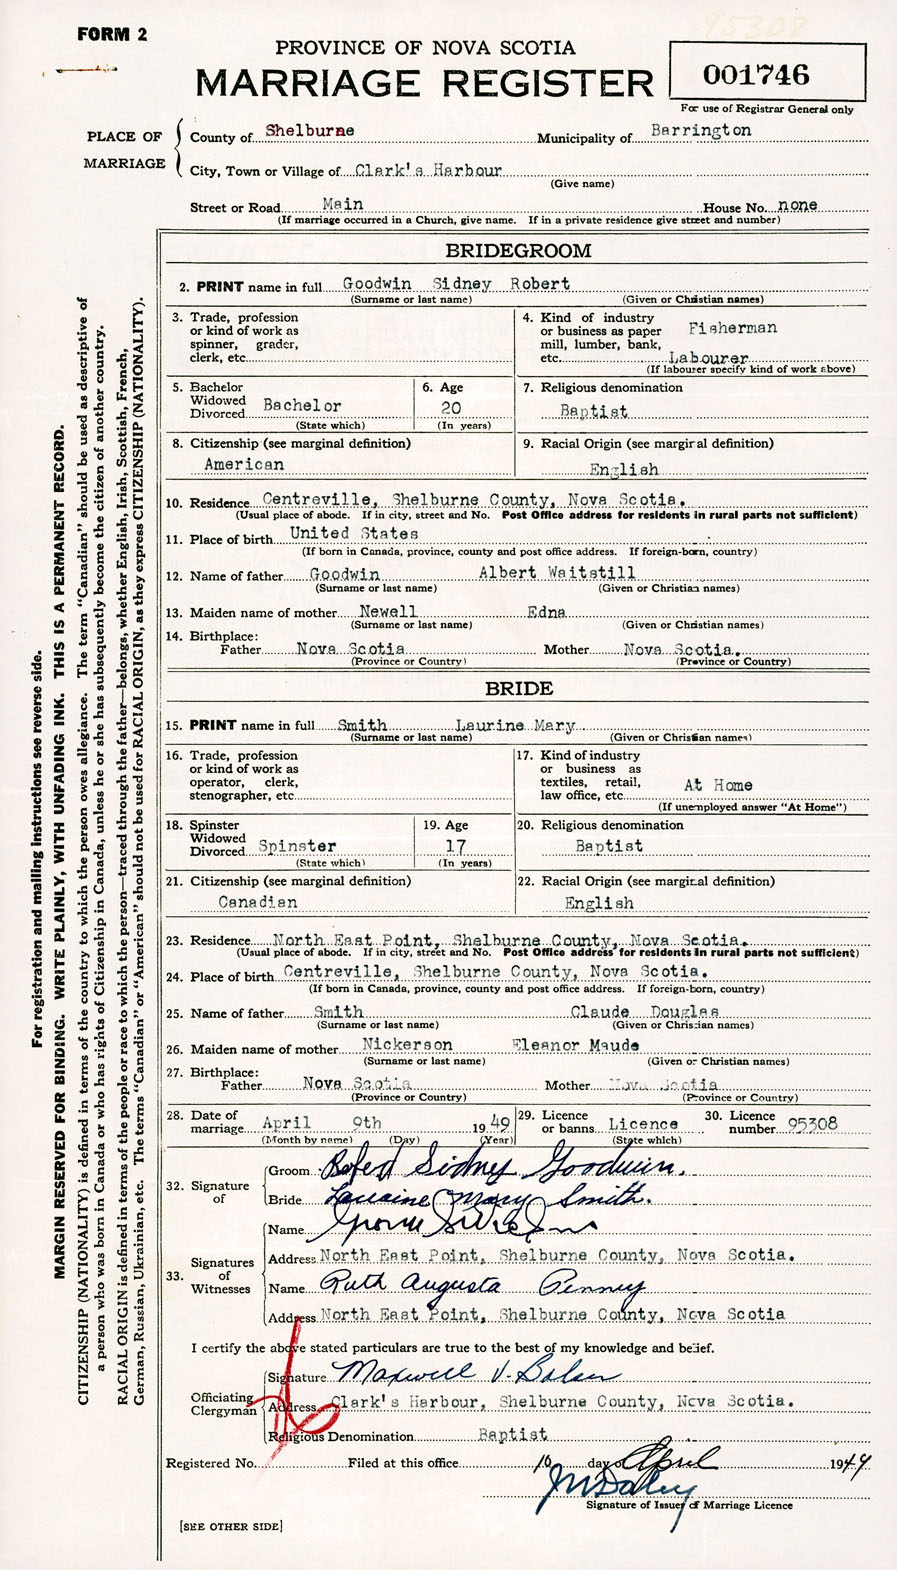 95308
FORM 2
PROVINCE OF NOVA SCOTIA
MARRIAGE REGISTER
001746
For use of Registrar General only
PLACE OF MARRIAGE
County of Shelburne Municipality of Barrington
City, Town or Village of Clark's Harbour
(Give name)
Street or Road Main House No. none
(If marriage occurred in a Church, give name. If in a private residence give street and number)
BRIDEGROOM
2. PRINT name in full Goodwin Sidney Robert
(Surname or last name) (Given or Christian names)
3. Trade, profession
or kind of work as
spinner, grader,
clerk, etc.
4. Kind of industry
or business as paper
mill, lumber, bank,
etc. Fisherman
Labourer
(If labourer specify kind of work above)
5. Bachelor
Widowed
Divorced Bachelor
(State which)
6. Age
20
(In years)
7. Religious denomination
Baptist
8. Citizenship (see marginal definition)
American
9. Racial Origin (see marginal definition)
English
10. Residence Centreville, Shelburne County, Nova Scotia.
(Usual place of abode. If in city, street and No. Post Office address for residents in rural parts not sufficient)
11. Place of birth United States
(If born in Canada, province, county and post office address. If foreign-born, country)
12. Name of father Goodwin Albert Waitstill
(Surname or last name) (Given or Christian names)
13. Maiden name of mother Newell Edna
(Surname or last name) (Given or Christian names)
14. Birthplace:
Father Nova Scotia Mother Nova Scotia.
(Province or Country) (Province or Country)
BRIDE
15. PRINT name in full Smith Laurine Mary
(Surname or last name) (Given or Christian names)
16. Trade, profession
or kind of work as
operator, clerk,
stenographer, etc
17. Kind of industry
or business as
textiles, retail,
law office, etc. At Home
(If unemployed answer "At Home")
18. Spinster
Widowed
Divorced Spinster
(State which)
19. Age
17
(In years)
20. Religious denomination
Baptist
21. Citizenship (see marginal definition)
Canadian
22. Racial Origin (see marginal definition)
English
23. Residence North East Point, Shelburne County, Nova Scotia.
(Usual place of abode. If in city, street and No. Post Office address for residents in rural parts not sufficient)
24. Place of birth Centreville, Shelburne County, Nova Scotia.
(If born in Canada, province, county and post office address. If foreign-born, country)
25. Name of father Smith Claude Douglas
(Surname or last name) (Given or Christian names)
26. Maiden name of mother Nickerson Eleanor Maude
(Surname or last name) (Given or Christian names)
27. Birthplace:
Father Nova Scotia Mother Nova Scotia
(Province or Country) (Province or Country)
28. Date of
marriage April 9th 1949
(Month by name) (Day) (Year)
29. Licence
or banns Licence
(State which)
30. Licence
number 95308
32. Signature of
Groom Robert Sidney Goodwin.
Bride Lorraine Mary Smith.
33. Signatures of Witnesses
Name
Address North East Point, Shelburne County, Nova Scotia.
Name Ruth Augusta Penney
Address North East Point, Shelburne County, Nova Scotia
I certify the above stated particulars are true to the best of my knowledge and belief.
Officiating Clergyman
Signature Maxwell V. Bolser
Address Clark's Harbour, Shelburne County, Nova Scotia.
Religious Denomination Baptist
Registered No. Filed at this office 16 day of April 1949
Signature of Issuer of Marriage Licence
[SEE OTHER SIDE]
For registration and mailing instructions see reverse side.
MARGIN RESERVED FOR BINDING. WRITE PLAINLY, WITH UNFADING INK. THIS IS A PERMANENT RECORD.
CITIZENSHIP (NATIONALITY) is defined in terms of the country to which the person owes allegiance. The term "Canadian" should be used as descriptive of
a person who was born in Canada or who has rights of Citizenship in Canada, unless he or she has subsequently become the citizen of another country.
RACIAL ORIGIN is defined in terms of the people or race to which the person—traced through the father—belongs, whether English, Irish, Scottish, French,
German, Russian, Ukrainian, etc. The terms "Canadian" or "American" should not be used for RACIAL ORIGIN, as they express CITIZENSHIP (NATIONALITY).